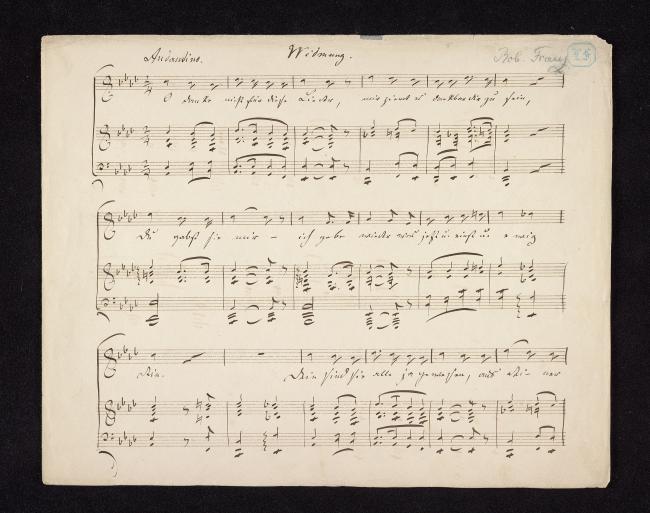 Andantino. Widmung. Rob. Franz
O danke nicht für diese Lieder, mir ziemt es dankbar dir zu sein,
Du gabst sie mir – ich gebe wieder was jetzt u. einst u. ewig
dein. Dein sind sie alle ja gewesen, aus deiner